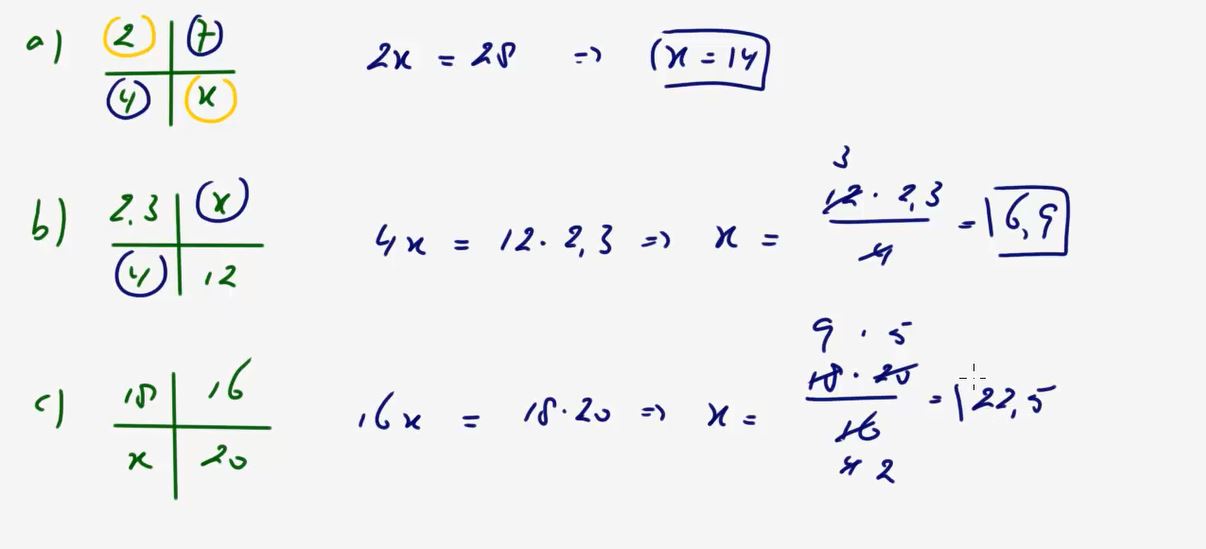 a) 2 7 2x = 28 => x = 14
4 x
3
b) 2,3 x 4x = 12 · 2,3 => x = 12 · 2,3 = 6,9
4 12 4
9 · 5
c) 18 16 16x = 18 · 20 => x = 18 · 20 = 22,5
x 20 16
4 2